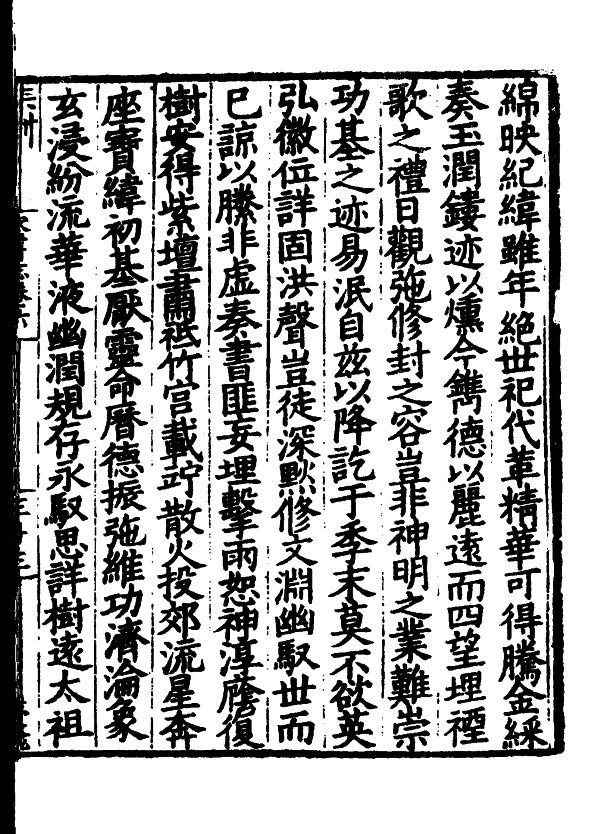 綿映紀緯雖年絕世祀代革精華可得騰金綵
奏玉潤鏤迹以燻今鐫德以麗遠而四望埋禋
歌之禮日觀弛修封之容豈非神明之業難崇
功基之迹易泯自茲以降訖于季末莫不欲英
弘徽位詳固洪聲豈徒深默修文淵幽馭世而
已諒以縢非虛奏書匪妄埋擊雨恕神淳廕復
樹安得紫壇肅祗竹宮載竚散火投郊流星奔
座寶緯初基厭靈命曆德振弛維功濟淪象
玄浸紛流華液幽潤規存永馭思詳樹遠太祖